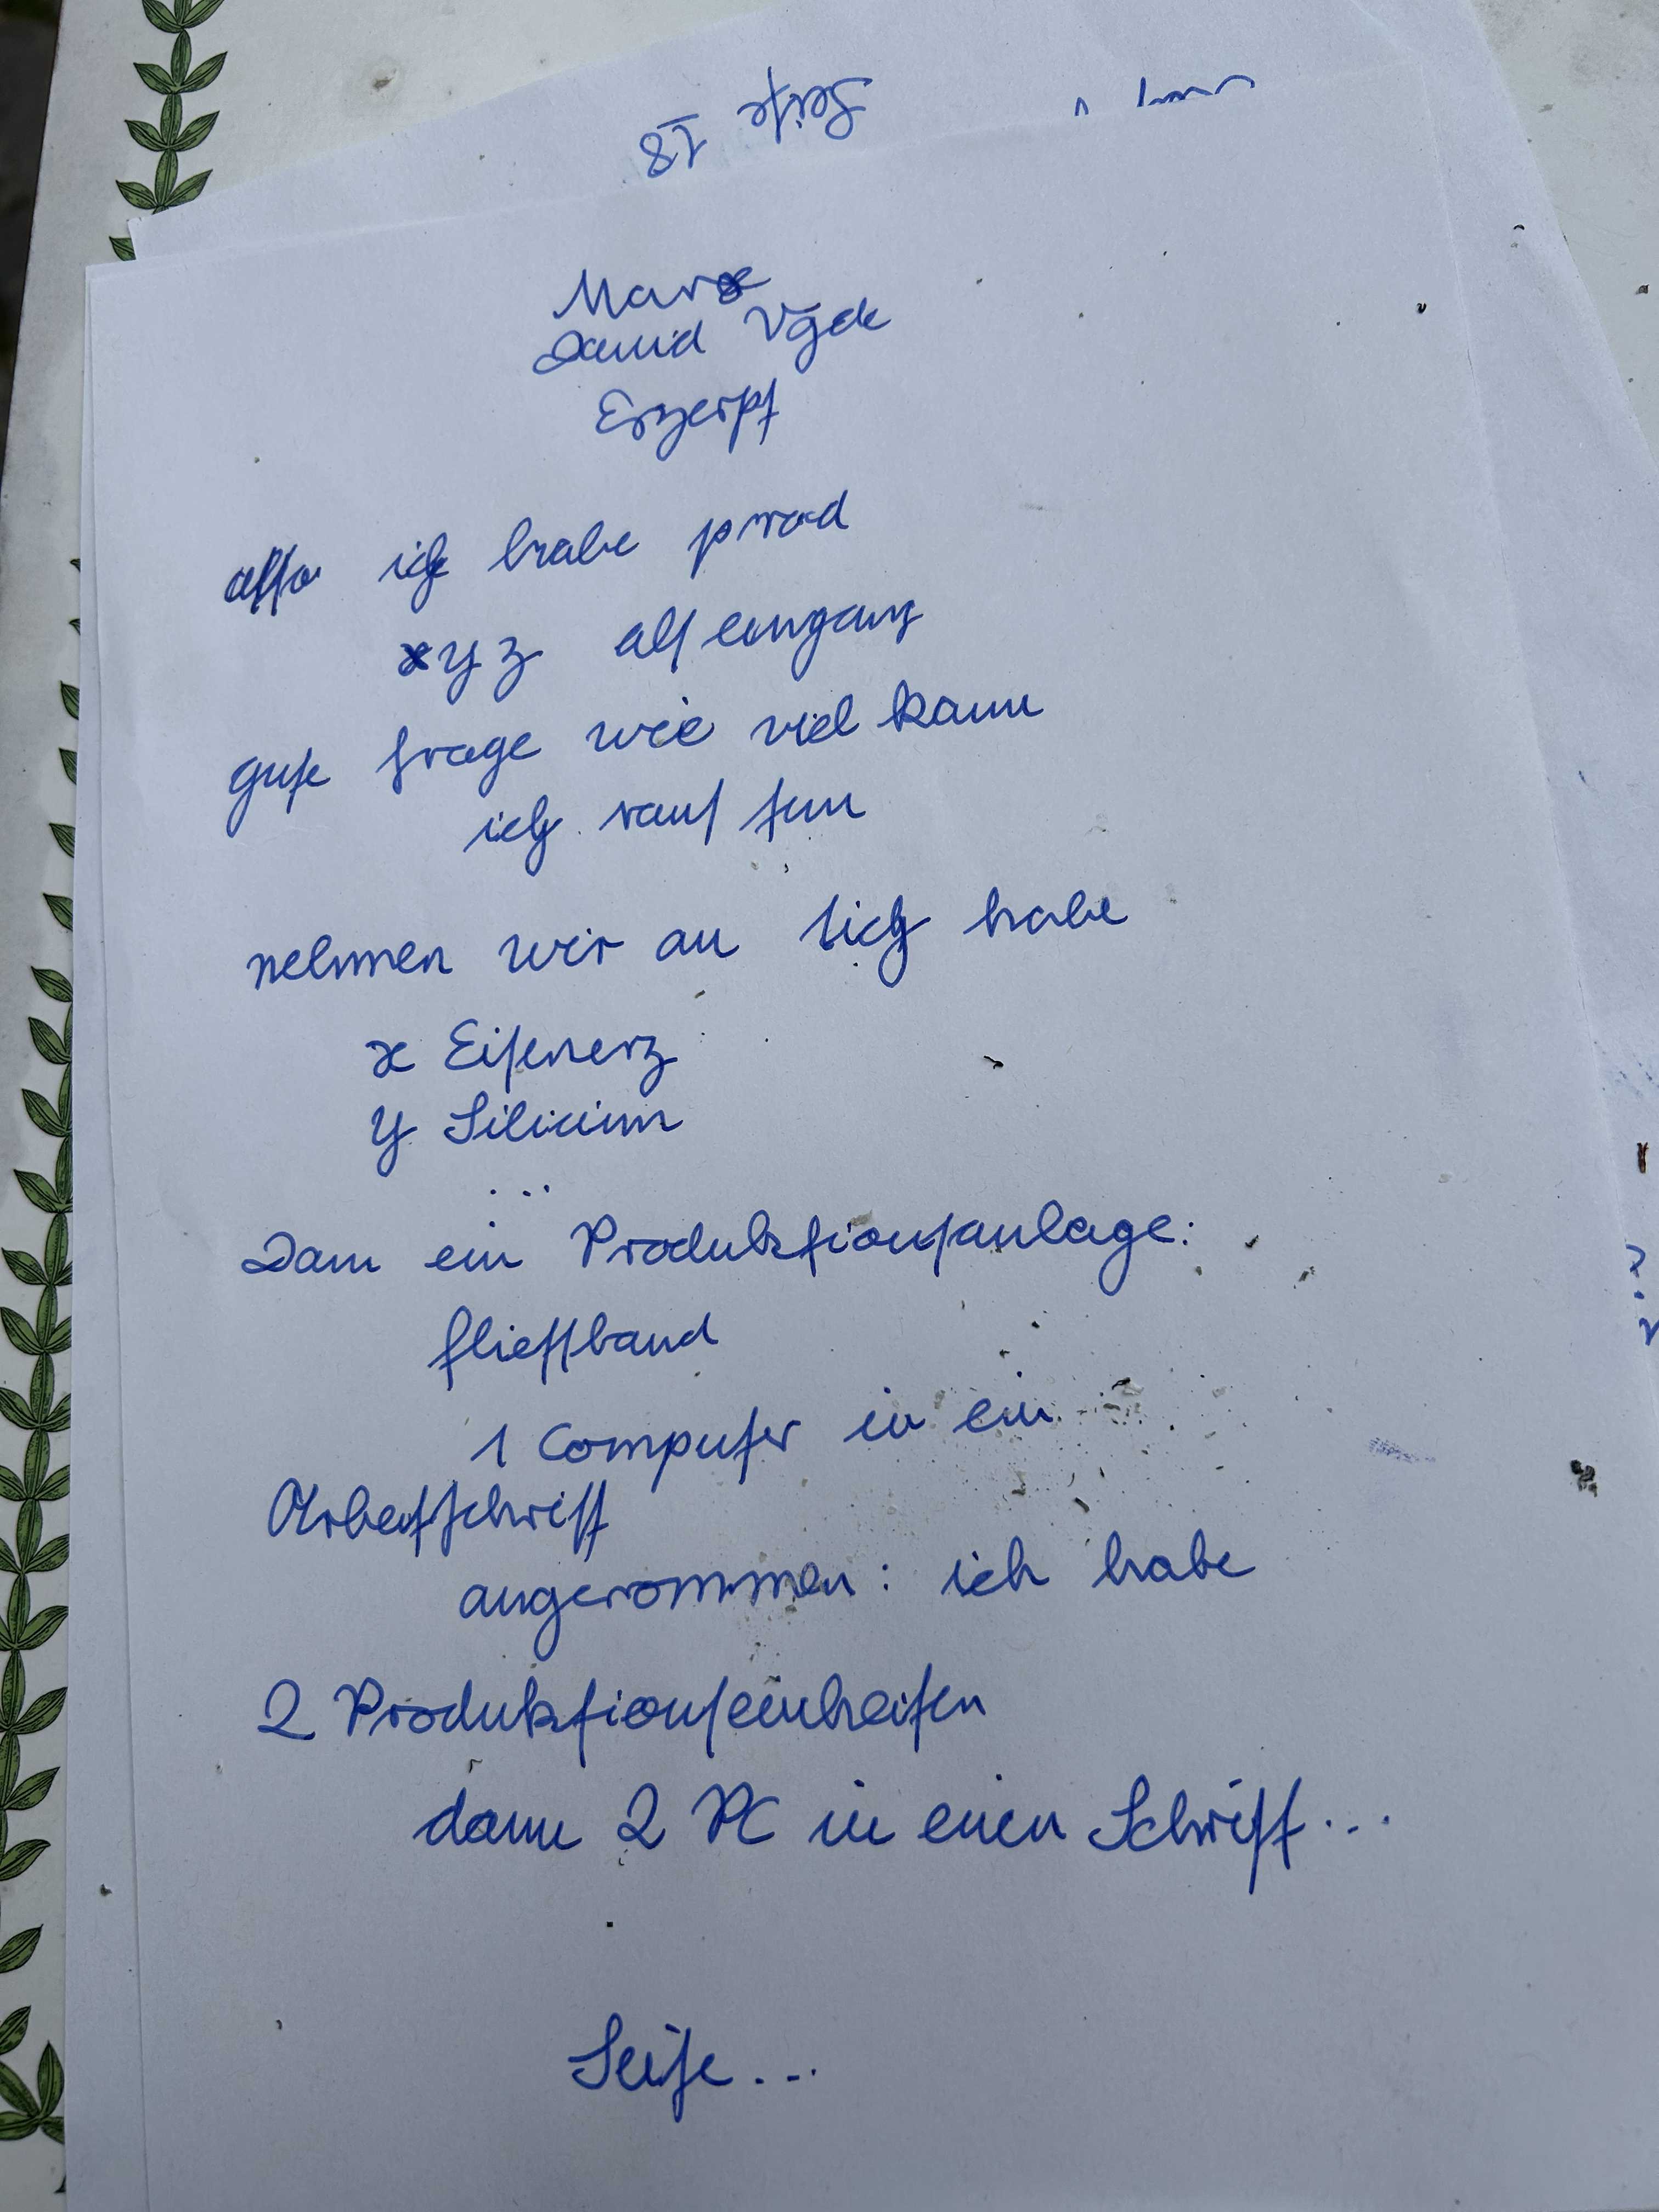 Seite 18
Marx
David Vgde
Exzerpt
also ich habe prod
xyz als eingang
gute frage wie viel kann
ich raus tun
nehmen wir an ich habe
x Eisenerz
y Silicium
...
Dann ein Produktionsanlage:
fliessband
1 Computer in ein
Arbeitsschritt
angenommen: ich habe
2 Produktionseinheiten
dann 2 PC in einen Schritt...
Seite...